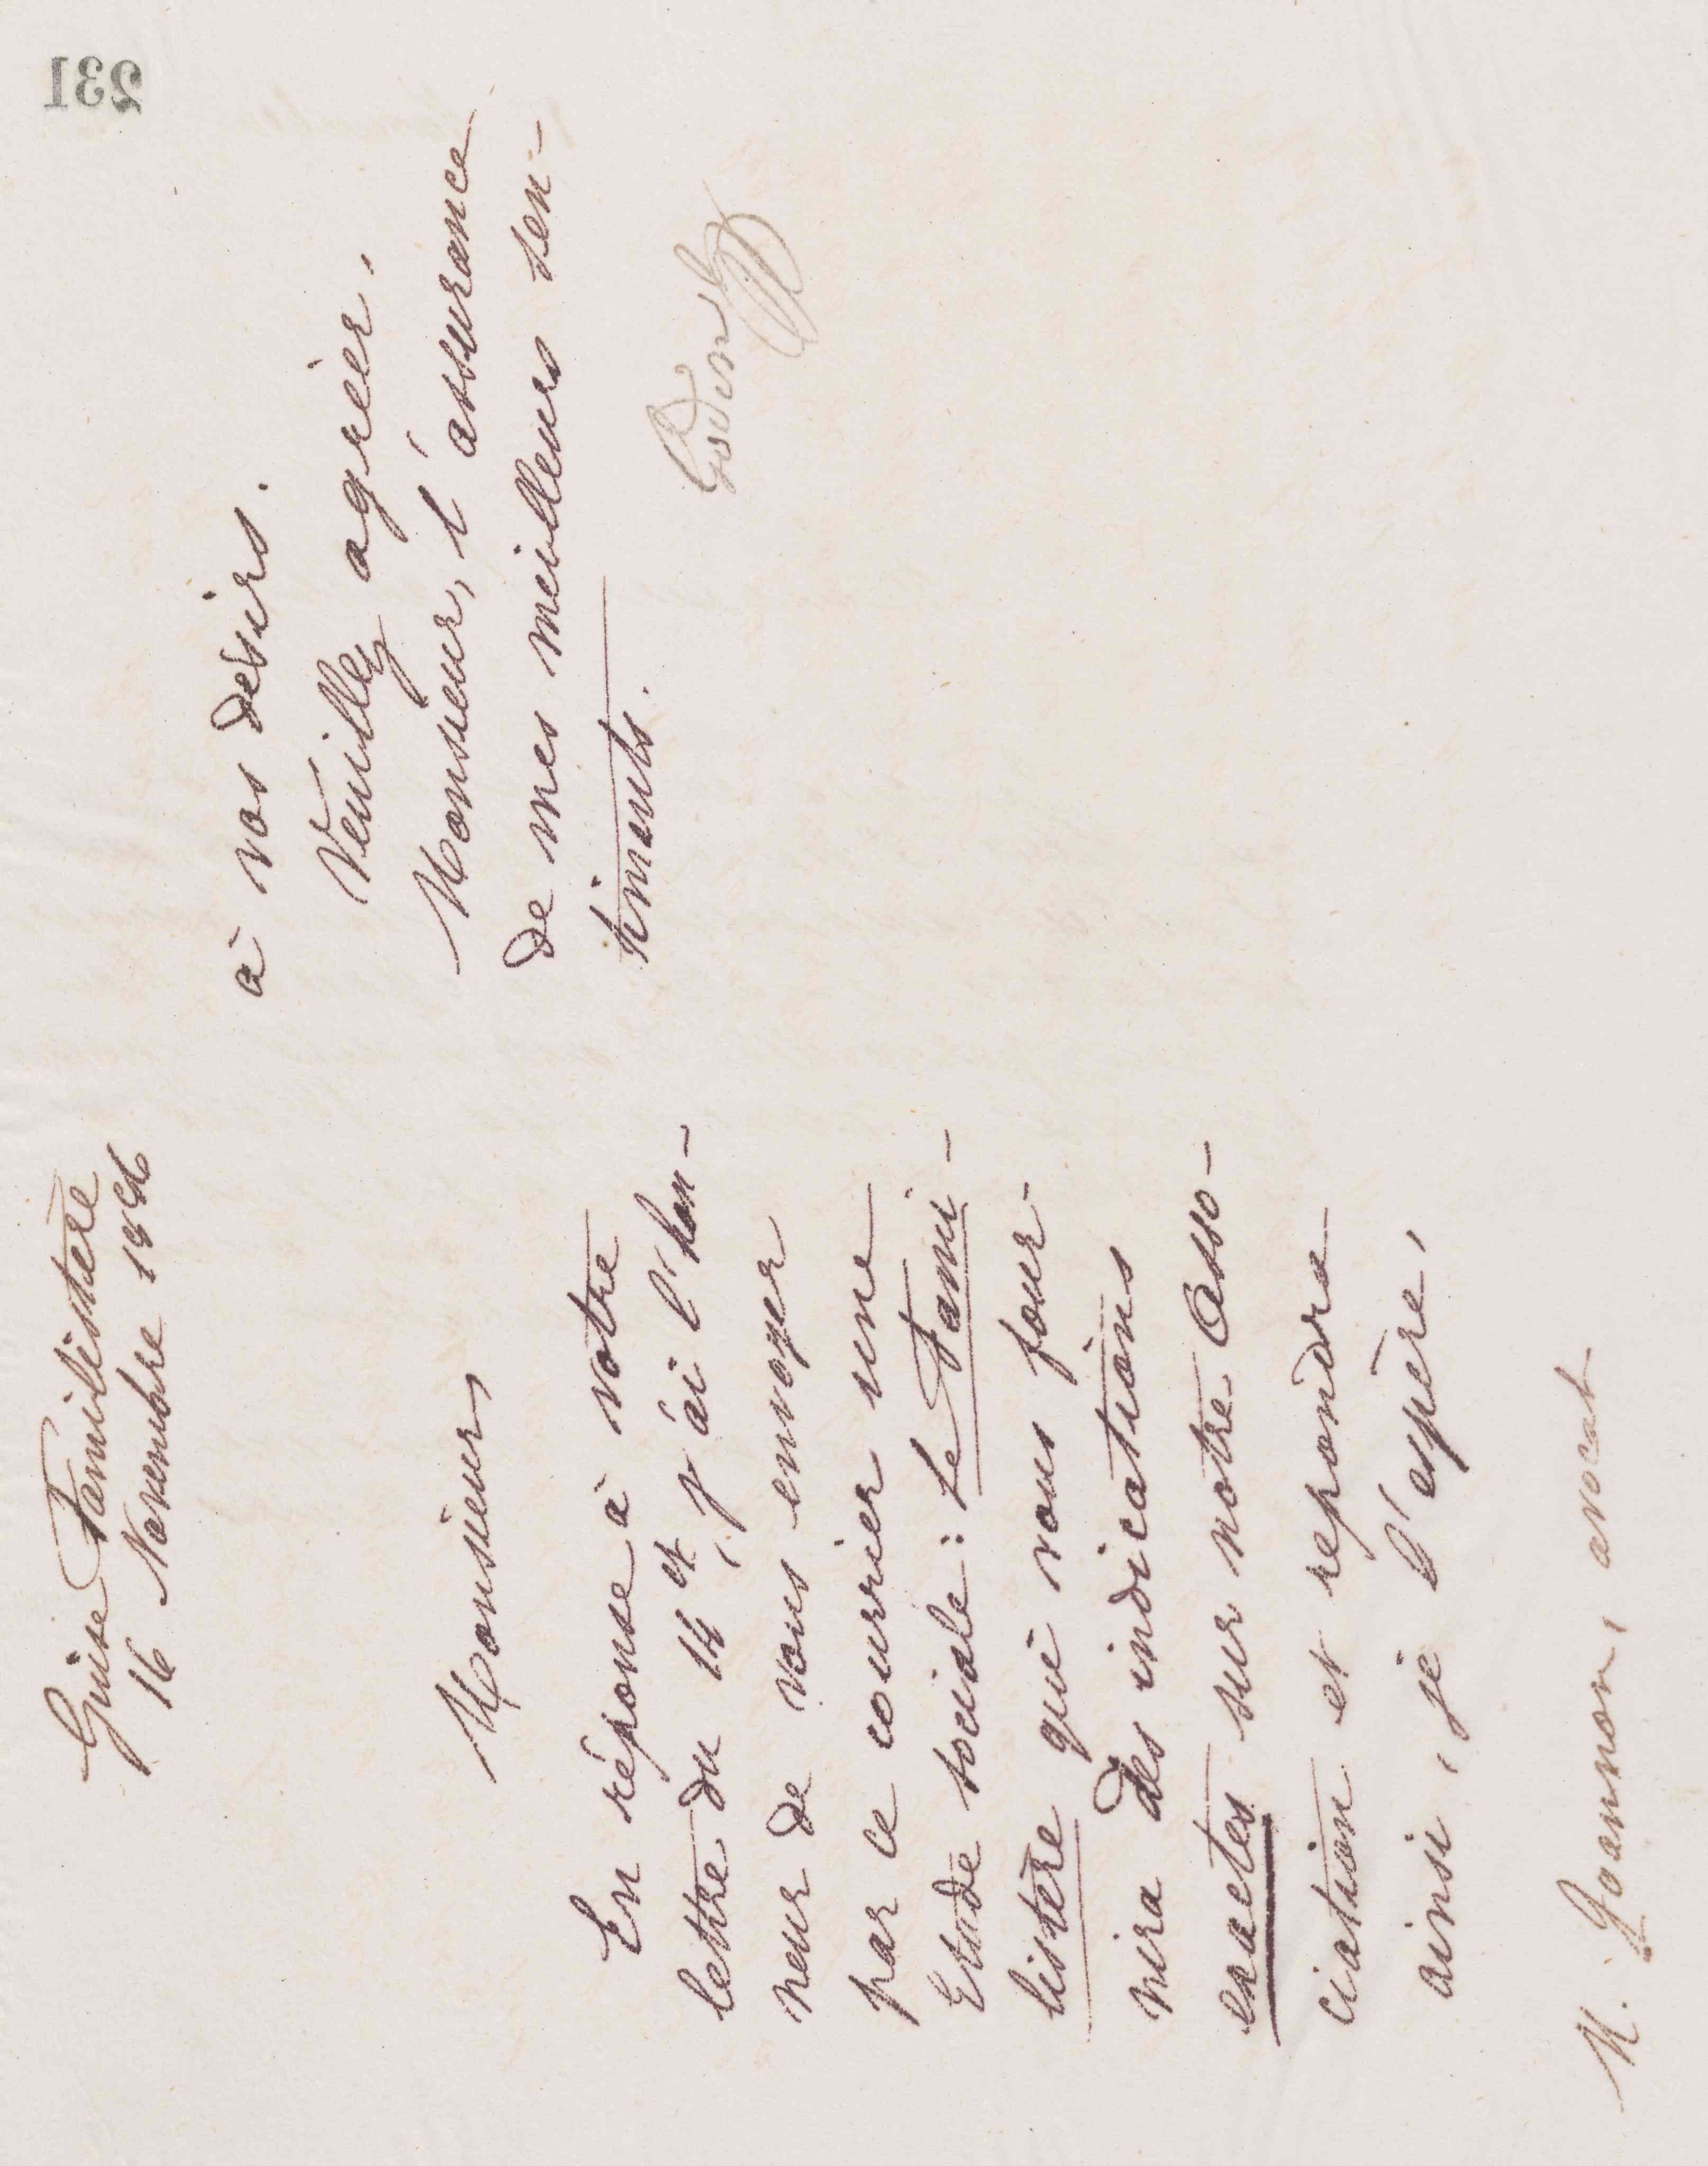 231
Guise Familistère
16 Novembre 1886
Monsieur,
En réponse à votre
lettre du 14 ct, j'ai l'hon-
neur de vous envoyer
par ce courrier une
Etude sociale : Le Fami-
listère qui vous four-
nira des indications
exactes sur notre Asso-
ciation et repondra
ainsi, je l'espère,
M. Joannon, avocat
à vos désirs.
Veuillez agréer,
Monsieur, l'assurance
de mes meilleurs sen-
timents.
Godin